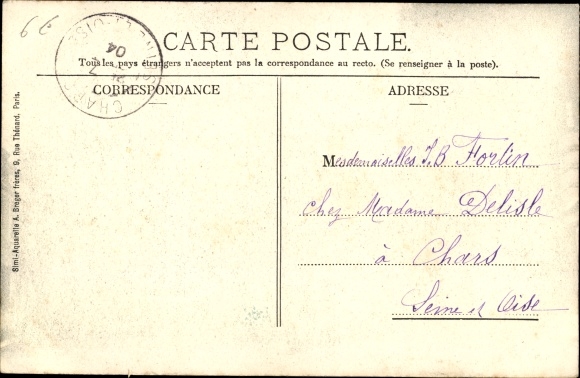 69
CHARS
SEINE-ET-OISE
24
7
04
CARTE POSTALE.
Tous les pays étrangers n'acceptent pas la correspondance au recto. (Se renseigner à la poste).
CORRESPONDANCE
ADRESSE
Mesdemoiselles J. B Fortin
chez Madame Delisle
à Chars
Seine et Oise
Simi-Aquarelle A. Breger frères, 9, Rue Thénard, Paris.